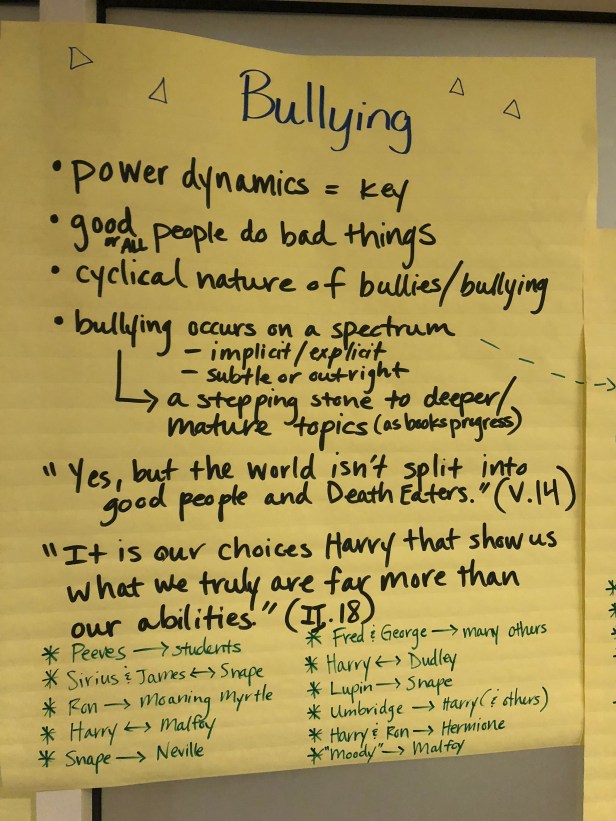 Bullying
• power dynamics = key
• good or ALL people do bad things
• cyclical nature of bullies/bullying
• bullying occurs on a spectrum
– implicit/explicit
– subtle or outright
→ a stepping stone to deeper/
mature topics (as books progress)
"Yes, but the world isn't split into
good people and Death Eaters." (V.14)
"It is our choices Harry that show us
what we truly are far more than
our abilities." (II.18)
* Peeves → students
* Sirius & James ↔ Snape
* Ron → Moaning Myrtle
* Harry ↔ Malfoy
* Snape → Neville
* Fred & George → many others
* Harry ↔ Dudley
* Lupin → Snape
* Umbridge → Harry (& others)
* Harry & Ron → Hermione
* "Moody" → Malfoy